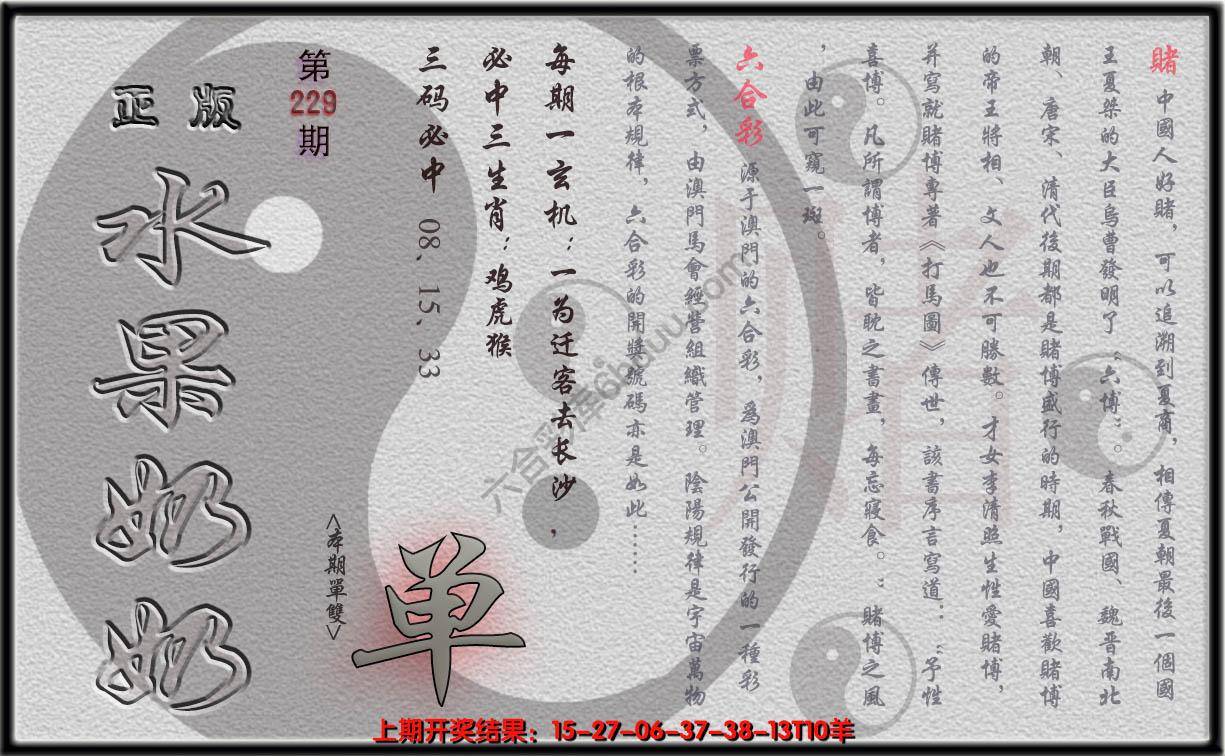 賭 中國人好賭，可以追溯到夏商，相傳夏朝最後一個國
王夏桀的大臣烏曹發明了“六博”。春秋戰國、魏晋南北
朝、唐宋、清代後期都是賭博盛行的時期，中國喜歡賭博
的帝王將相、文人也不可勝數。才女李清照生性愛賭博，
并寫就賭博專著《打馬圖》傳世，該書序言寫道：“予性
喜博。凡所謂博者，皆耽之書畫，每忘寢食。”賭博之風
，由此可窺一斑。
六合彩 源于澳門的六合彩，爲澳門公開發行的一種彩
票方式，由澳門馬會經營組織管理。陰陽規律是宇宙萬物
的根本規律，六合彩的開獎號碼亦是如此……
每期一玄机：一为迁客去长沙，
必中三生肖：鸡虎猴
三码必中 08、15、33
第
229
期
正版
水果奶奶
<本期單雙>
单
賭
六合彩库6huuu.com
上期开奖结果：15-27-06-37-38-13T10羊